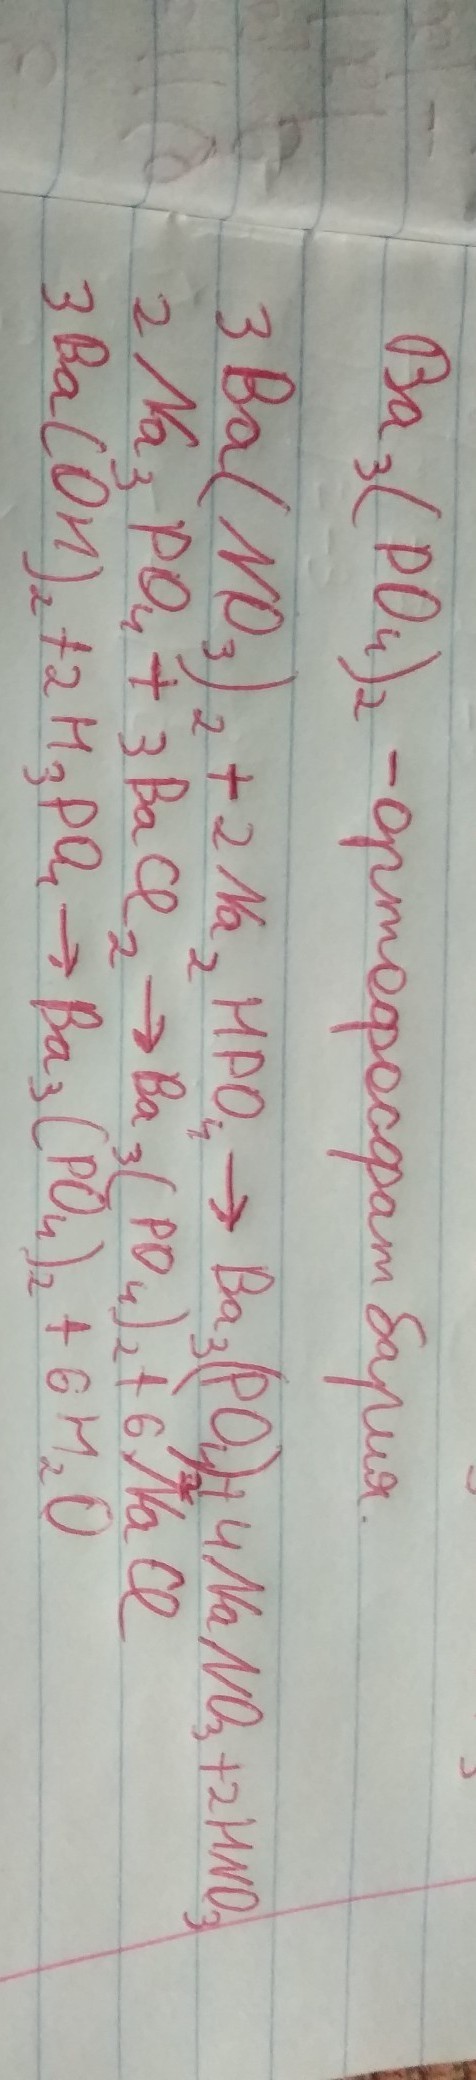 Ba₃(PO₄)₂ - ортофосфат бария.
3Ba(NO₃)₂ + 2Na₂HPO₄ → Ba₃(PO₄)₂ + 4NaNO₃ + 2HNO₃
2Na₃PO₄ + 3BaCl₂ → Ba₃(PO₄)₂ + 6NaCl
3Ba(OH)₂ + 2H₃PO₄ → Ba₃(PO₄)₂ + 6H₂O